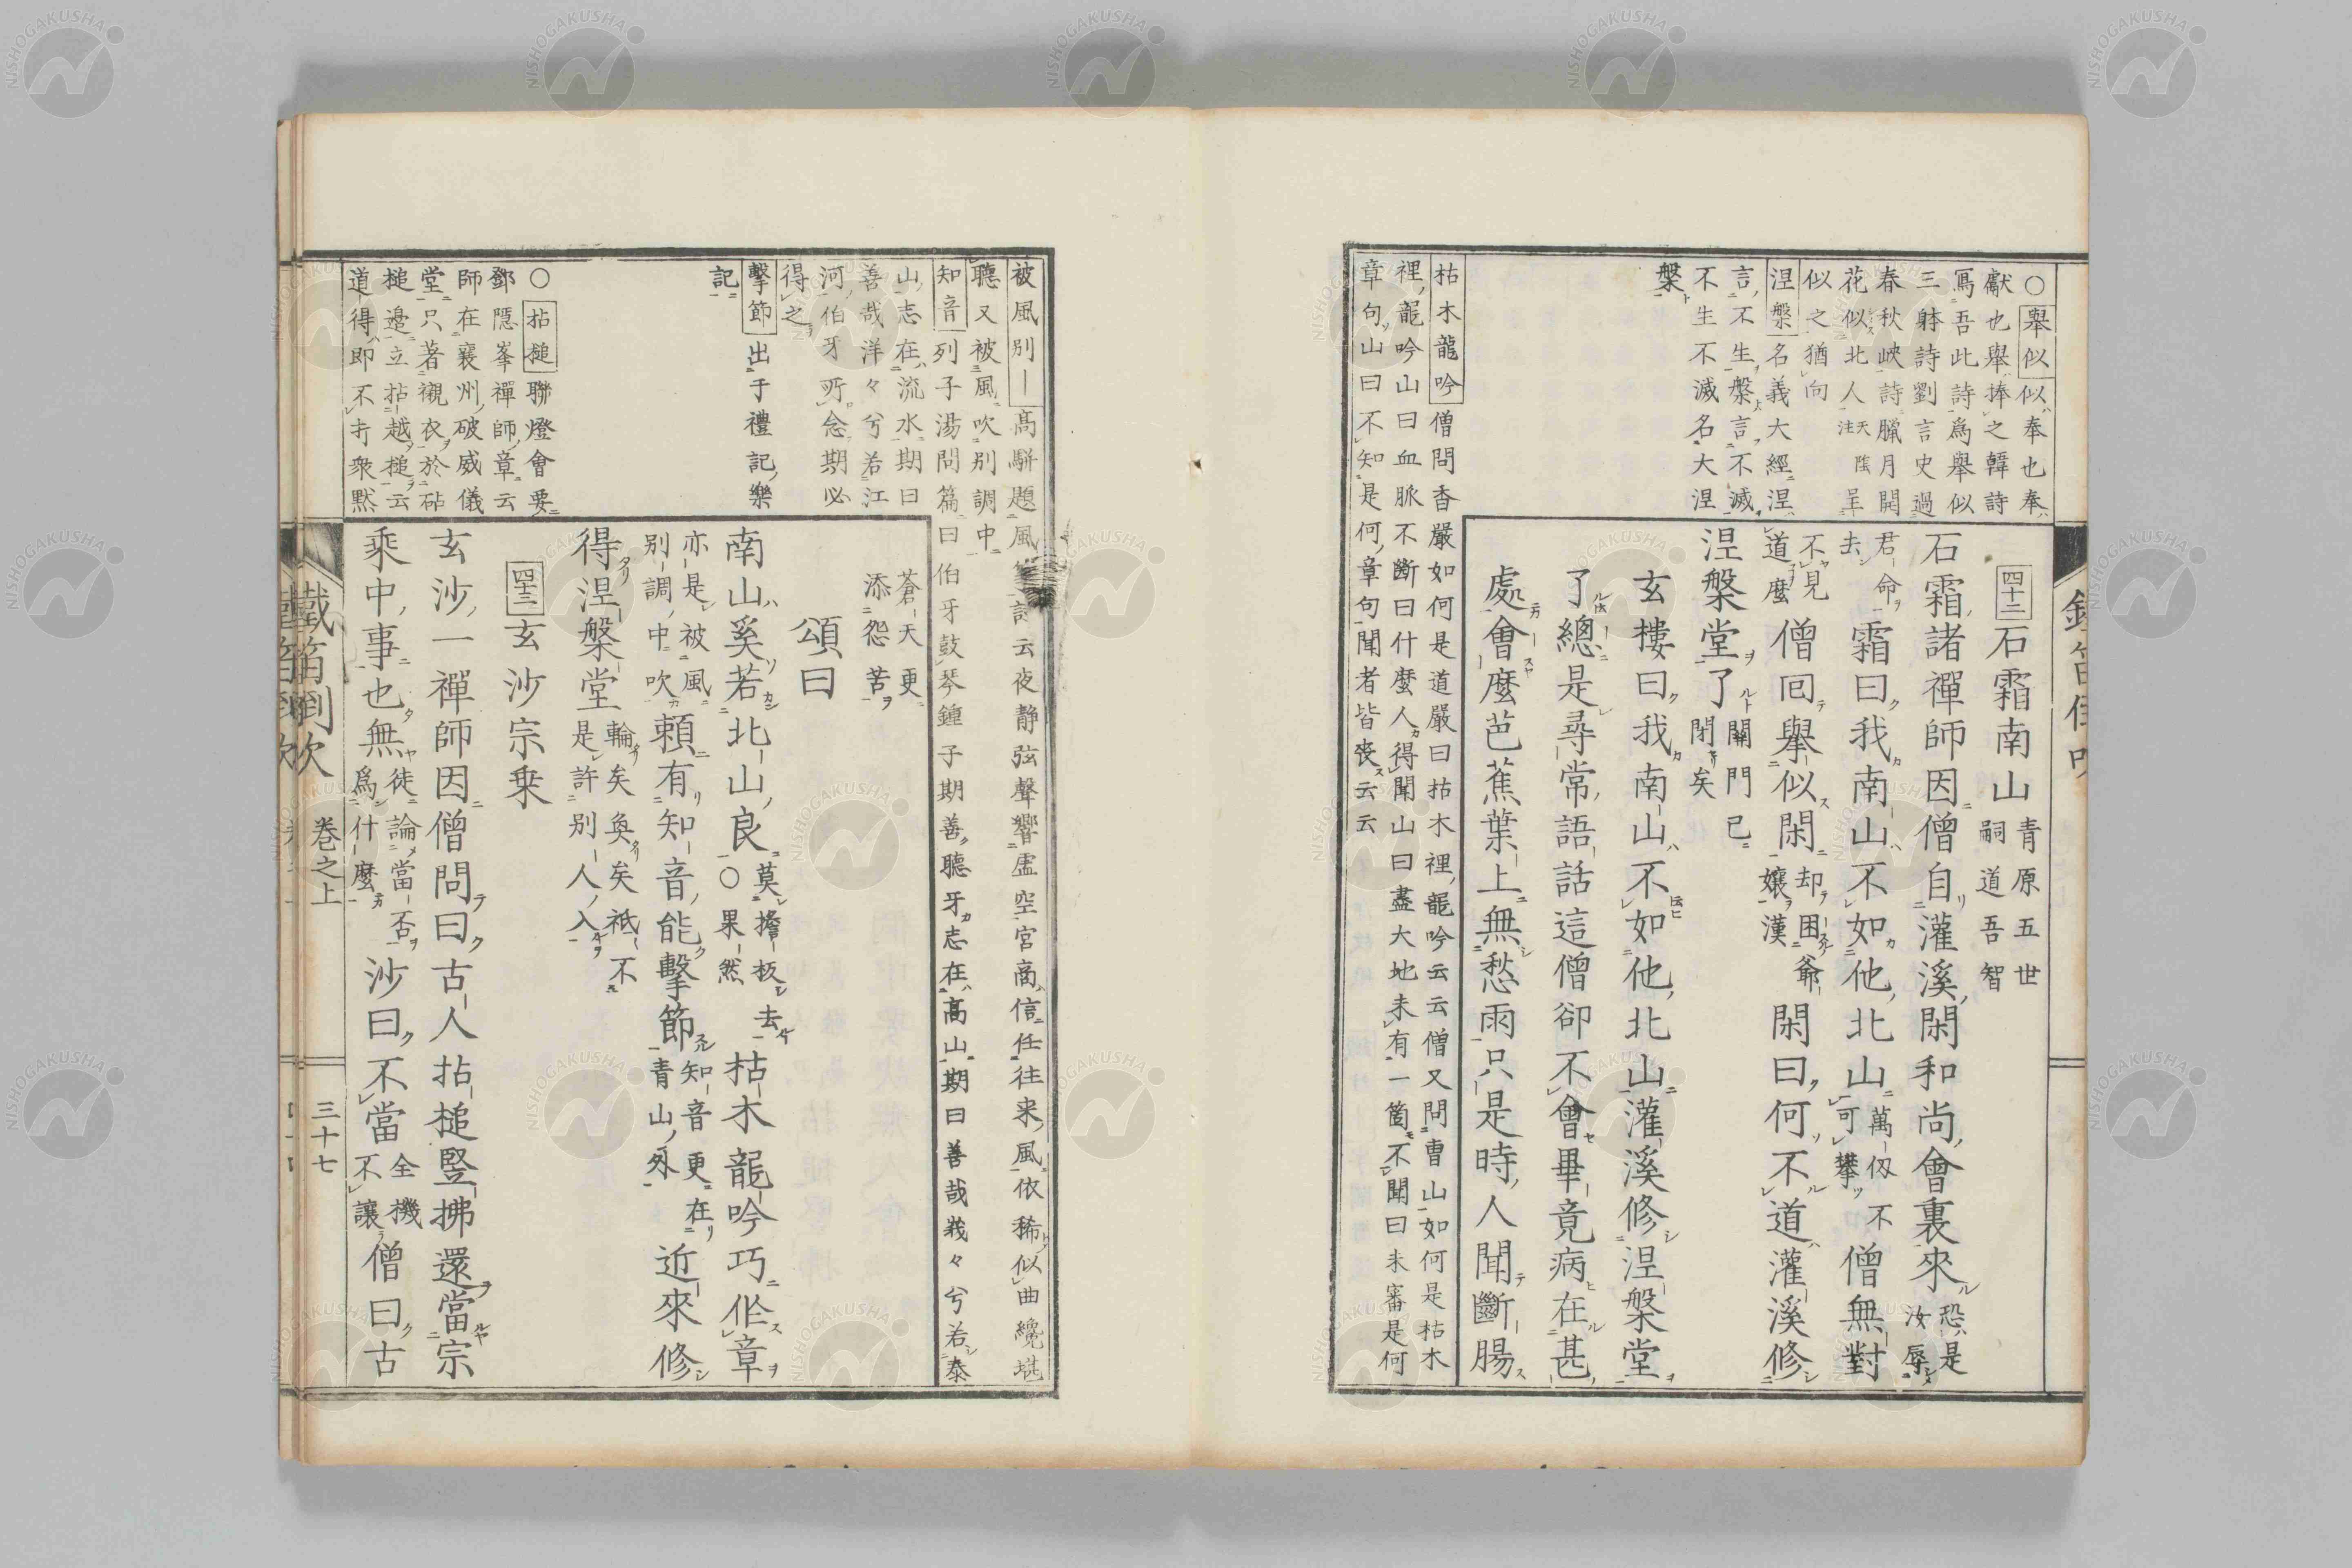 ○舉似似奉也奉
獻也舉捧之韓詩
寫吾此詩爲舉似
三躰詩劉言史過
春秋峽詩臘月開
花似北人天注陰呈
似之猶向
涅槃名義大經涅
言不生槃言不滅
不生不滅名大涅
槃
枯木龍吟僧問香嚴如何是道嚴曰枯木裡龍吟云云僧又問曹山如何是枯木
裡龍吟山曰血脈不斷曰什麼人得聞山曰盡大地未有一箇不聞曰未審是何
章句山曰不知是何章句聞者皆喪云云
四十二 石霜南山 青原五世
嗣道吾智
石霜諸禪師因僧自灌溪閑和尚會裏來 恐是
汝辱
君命
去 霜曰我南山不如他北山 萬仭不
可攀 僧無對
不見
道麼 僧回擧似閑 却困爺
孃漢 閑曰何不道灌溪修
涅槃堂了 關門已
閉矣
玄樓曰我南山不如他北山灌溪修涅槃堂
了總是尋常語話這僧卻不會畢竟病在甚
處會麼芭蕉葉上無愁雨只是時人聞斷腸
被風別｜高駢題風箏詩云夜静弦聲響虚空宮商信任往來風依稀似曲纔堪
聽又被風吹別調中
知音列子湯問篇曰伯牙鼓琴鍾子期善聽牙志在高山期曰善哉峩々兮若泰
山志在流水期曰
善哉洋々兮若江
河伯牙所念期必
得之
擊節出于禮記樂
記
○拈槌聯燈會要
鄧隱峯禪師章云
師在襄州破威儀
堂只著襯衣於砧
槌邉立拈越槌云
道得即不打衆默
蒼天更
添怨苦
頌曰
南山奚若北山良 莫擔板去
○果然 枯木龍吟巧作章
亦是被風
別調中吹 頼有知音能擊節 知音更在
青山外 近來修
得涅槃堂 輪矣奐矣祗不
是許別人入
四十三 玄沙宗乗
玄沙一禪師因僧問曰古人拈槌竪拂還當宗
乘中事也無 徒論當否
爲什麼 沙曰不當 全機
不讓 僧曰古
鐵笛倒吹 巻之上 三十七